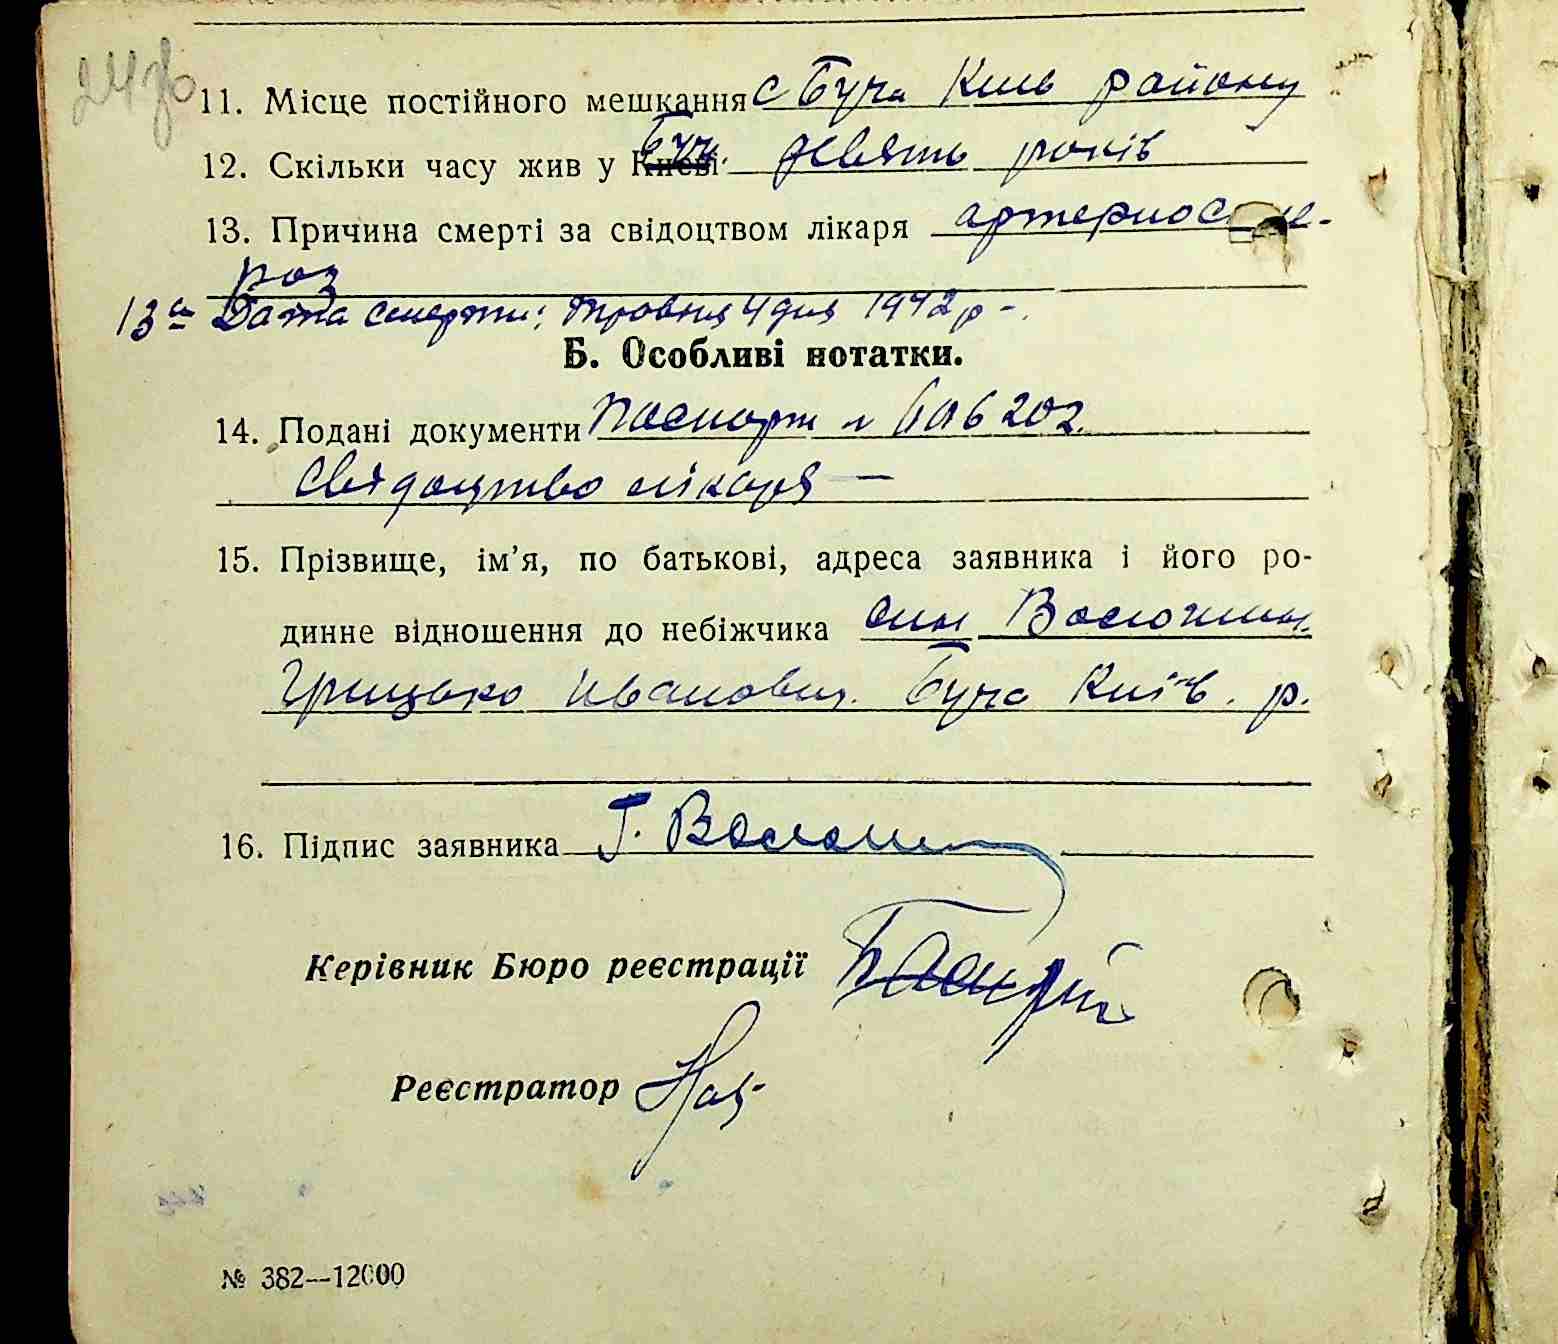 24зв
11. Місце постійного мешкання с Буча Київ району
12. Скільки часу жив у Києві Буч. девять років
13. Причина смерті за свідоцтвом лікаря артериоскле-
роз
13а Дата смерти: травня 4 дня 1942 р.
Б. Особливі нотатки.
14. Подані документи Паспорт № 606202
Свідоцтво лікаря —
15. Прізвище, ім’я, по батькові, адреса заявника і його ро-
динне відношення до небіжчика син
Грицько Иванович. Буча Київ. р.
16. Підпис заявника Г.
Керівник Бюро реєстрації
Реєстратор
№ 382—12000